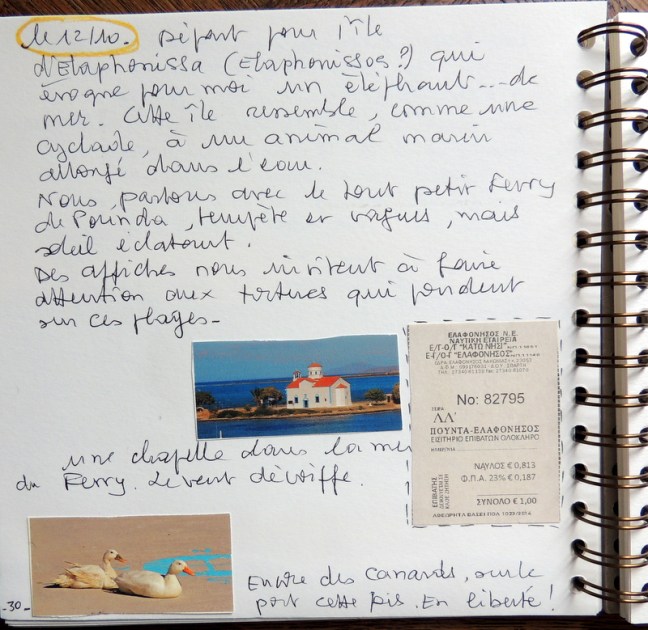 le 12/10. Départ pour l'île
d'Elaphonissa (Elaphonissos?) qui
évoque pour moi un éléphant... de
mer. Cette île ressemble, comme une
cyclade, à un animal marin
allongé dans l'eau.
Nous partons avec le tout petit Ferry
de Pounda, tempête et vagues, mais
soleil éclatant.
Des affiches nous invitent à faire
attention aux tortues qui pondent
sur ces plages-
ΕΛΑΦΟΝΗΣΟΣ Ν.Ε.
ΝΑΥΤΙΚΗ ΕΤΑΙΡΕΙΑ
Ε/Γ-Ο/Γ "ΚΑΤΩ ΝΗΣΙ"
Ε/Γ-Ο/Γ "ΕΛΑΦΟΝΗΣΟΣ"
No: 82795
ΛΛ'
ΠΟΥΝΤΑ-ΕΛΑΦΟΝΗΣΟΣ
ΕΙΣΙΤΗΡΙΟ ΕΠΙΒΑΤΩΝ ΟΛΟΚΛΗΡΟ
ΝΑΥΛΟΣ € 0,813
Φ.Π.Α. 23% € 0,187
ΕΠΙΒΑΤΗΣ
ΣΥΝΟΛΟ € 1,00
une chapelle dans la mer
du Ferry. Le vent décoiffe.
Encore des canards, sur le
port cette fois. En liberté!
-30-